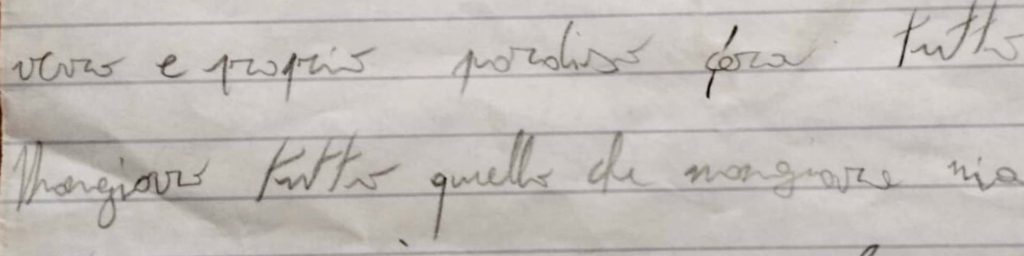 vero e proprio paradiso c'era tutto
Mangiavo tutto quello che mangiare mia